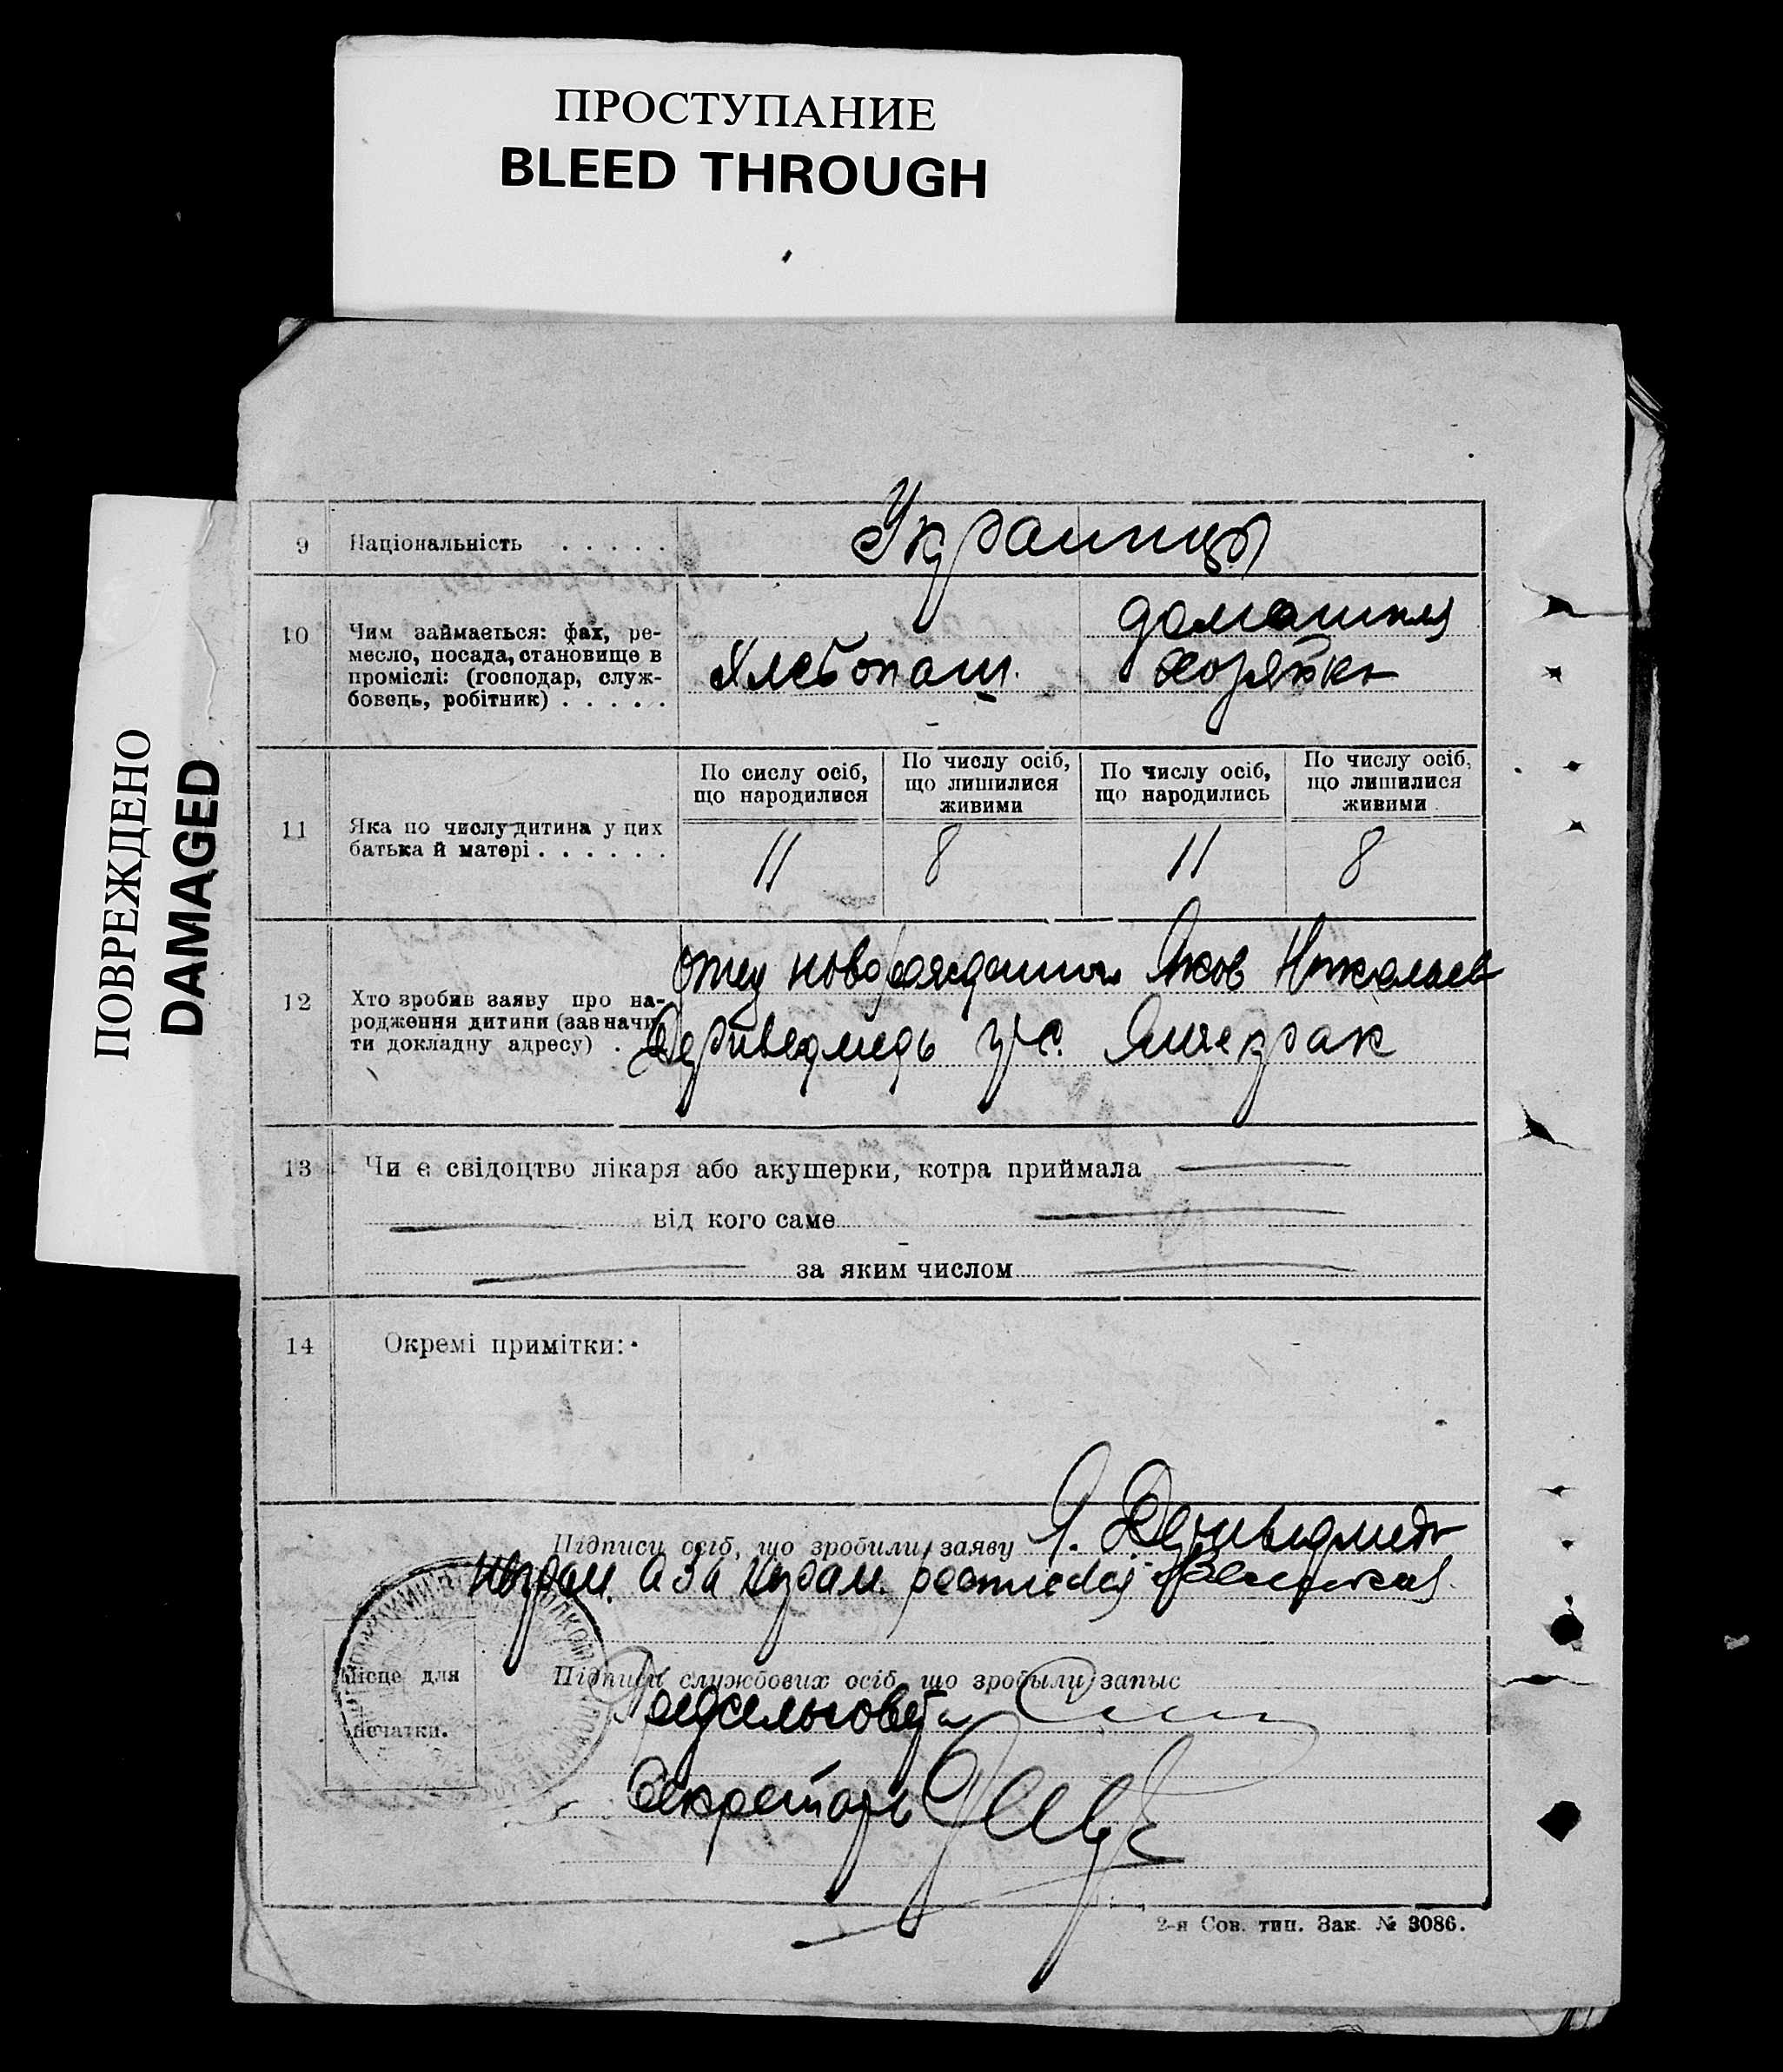 ПРОСТУПАНИЕ
BLEED THROUGH
ПОВРЕЖДЕНО
DAMAGED
9 Національність . . . . . Украинцы
10 Чим займається: фах, ре-
месло, посада, становище в
проміслі: (господар, служ-
бовець, робітник) . . . . .
Хлебопаш.
домашняя
хозяйка
11 Яка по числу дитина у цих
батька й матері . . . . . .
По сислу осіб,
що народилися
По числу осіб,
що лишилися
живими
По числу осіб,
що народились
По числу осіб,
що лишилися
живими
11 8 11 8
12 Хто зробив заяву про на-
родження дитини (зазначи-
ти докладну адресу) .
отец новорожденного Яков Николаев
Дериведмедь с. Янчекрак
13 Чи є свідоцтво лікаря або акушерки, котра приймала
від кого саме
за яким числом
14 Окремі примітки:
Підписи осіб, що зробили заяву Я. Дериведмедь
неграм. а за неграм. росписался
Місце для
печатки.
Підписи службових осіб, що зробыли запыс
Предсельсовета
Секретарь
2-я Сов. тип. Зак. № 3086.